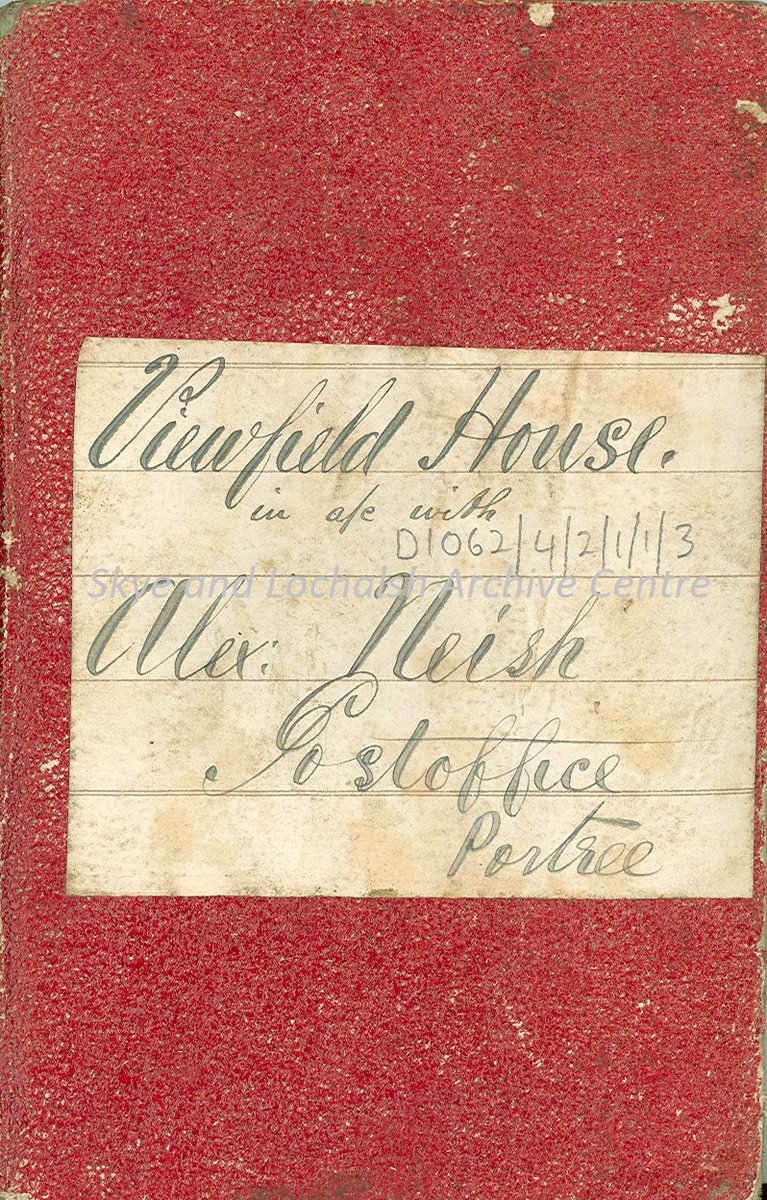 Viewfield House.
in a/c with
D1062/4/2/1/1/3
Skye and Lochalsh Archive Centre
Alex: Neish
Postoffice
Portree